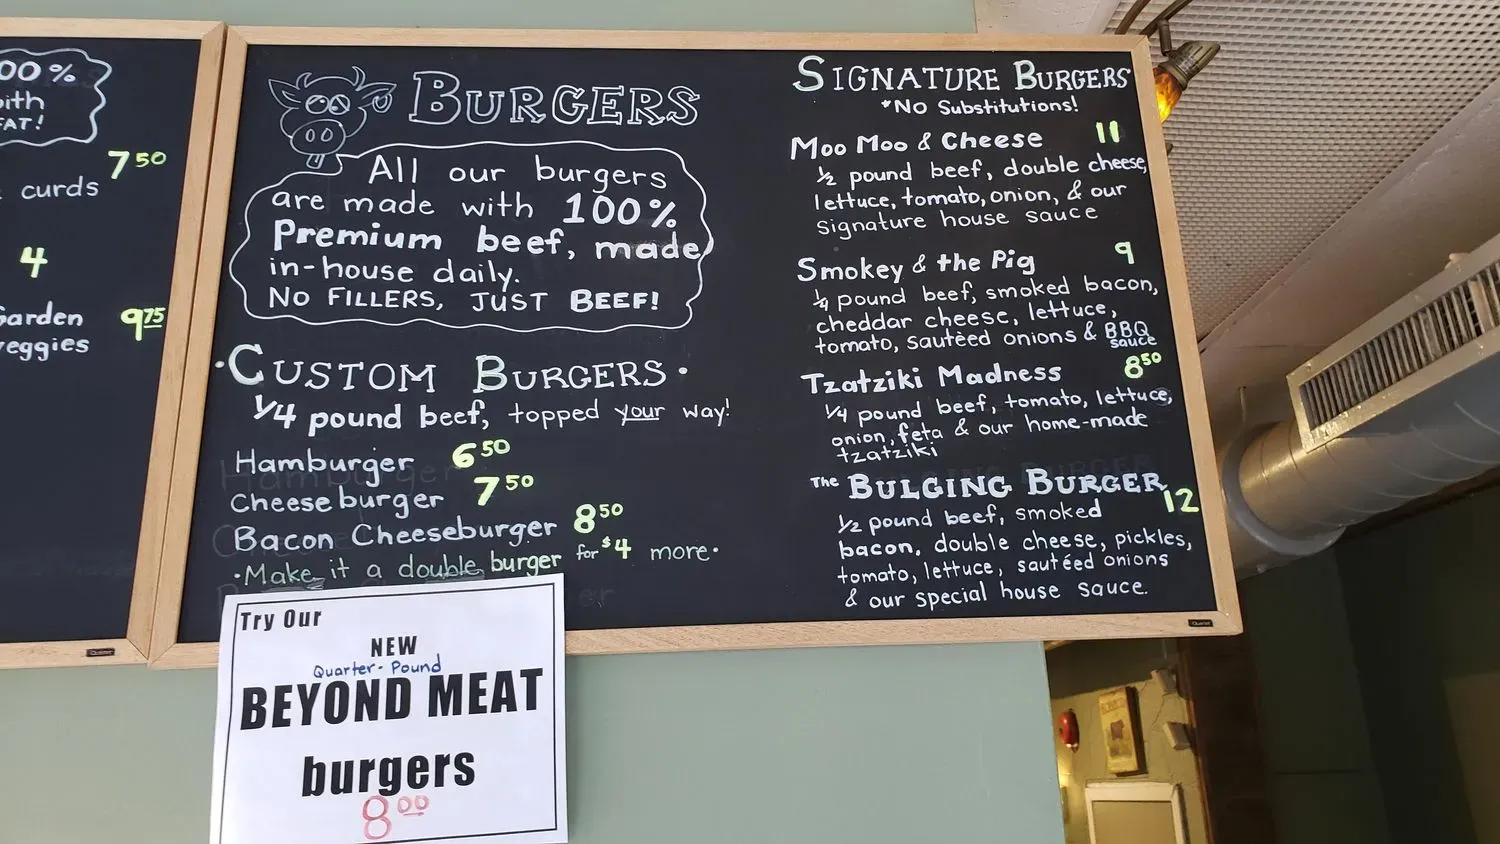 00%
with
FAT!
7 50
curds
4
Garden
veggies
9 75
BURGERS
All our burgers
are made with 100%
Premium beef, made
in-house daily.
NO FILLERS, JUST BEEF!
· CUSTOM BURGERS ·
1/4 pound beef, topped your way!
Hamburger 6 50
Cheeseburger 7 50
Bacon Cheeseburger 8 50
· Make it a double burger for $4 more ·
Try Our
NEW
Quarter-Pound
BEYOND MEAT
burgers
8 00
SIGNATURE BURGERS
*No Substitutions!
Moo Moo & Cheese 11
1/2 pound beef, double cheese,
lettuce, tomato, onion, & our
signature house sauce
Smokey & the Pig 9
1/4 pound beef, smoked bacon,
cheddar cheese, lettuce,
tomato, sautèed onions & BBQ
sauce
Tzatziki Madness 8 50
1/4 pound beef, tomato, lettuce,
onion, feta & our home-made
tzatziki
The BULGING BURGER 12
1/2 pound beef, smoked
bacon, double cheese, pickles,
tomato, lettuce, sautéed onions
& our special house sauce.